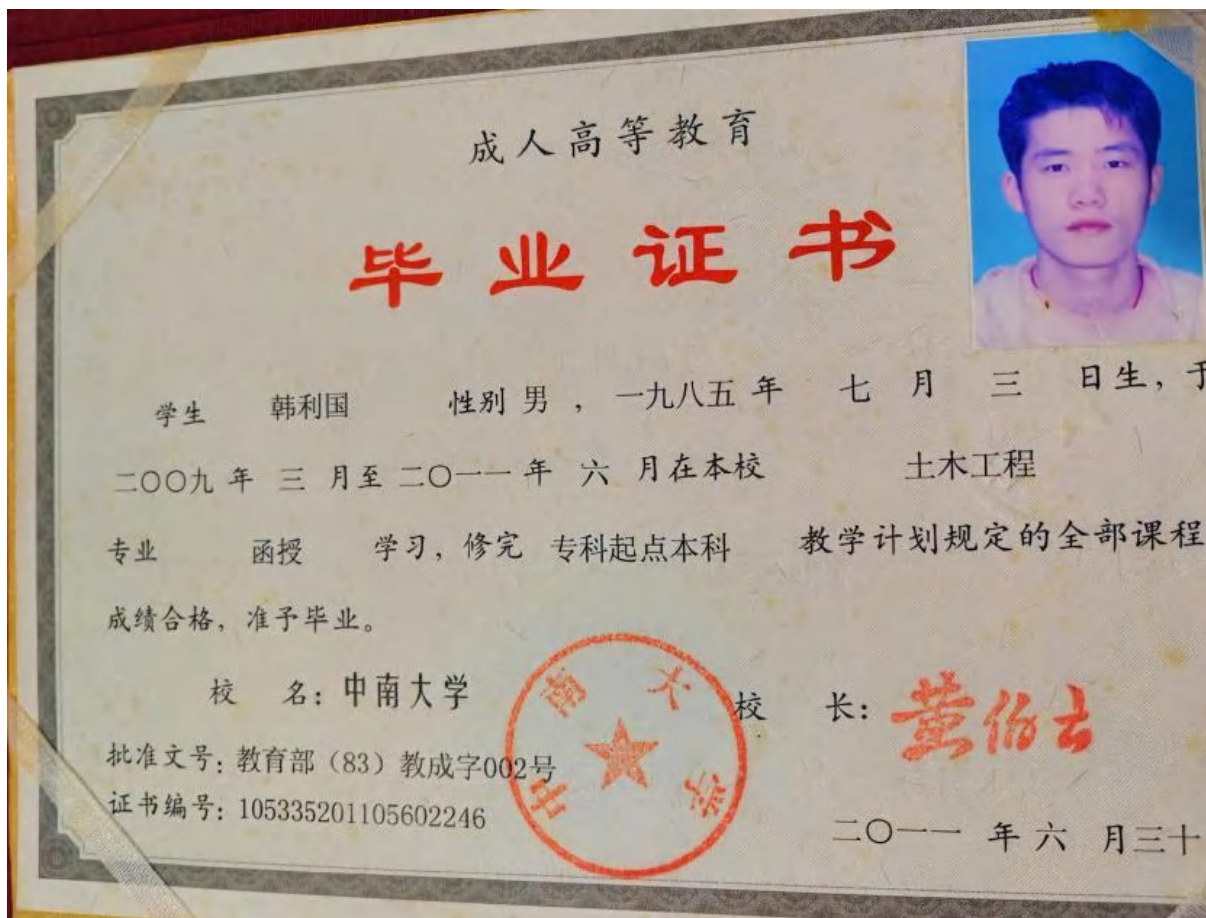 成人高等教育
毕业证书
学生 韩利国 性别 男 , 一九八五 年 七 月 三 日生, 于
二〇〇九 年 三 月至 二〇一一 年 六 月在本校 土木工程
专业 函授 学习, 修完 专科起点本科 教学计划规定的全部课程
成绩合格, 准予毕业。
校 名: 中南大学 校 长: 黄伯云
中南大学
批准文号: 教育部（83）教成字002号
证书编号: 105335201105602246
二〇一一 年 六 月三十